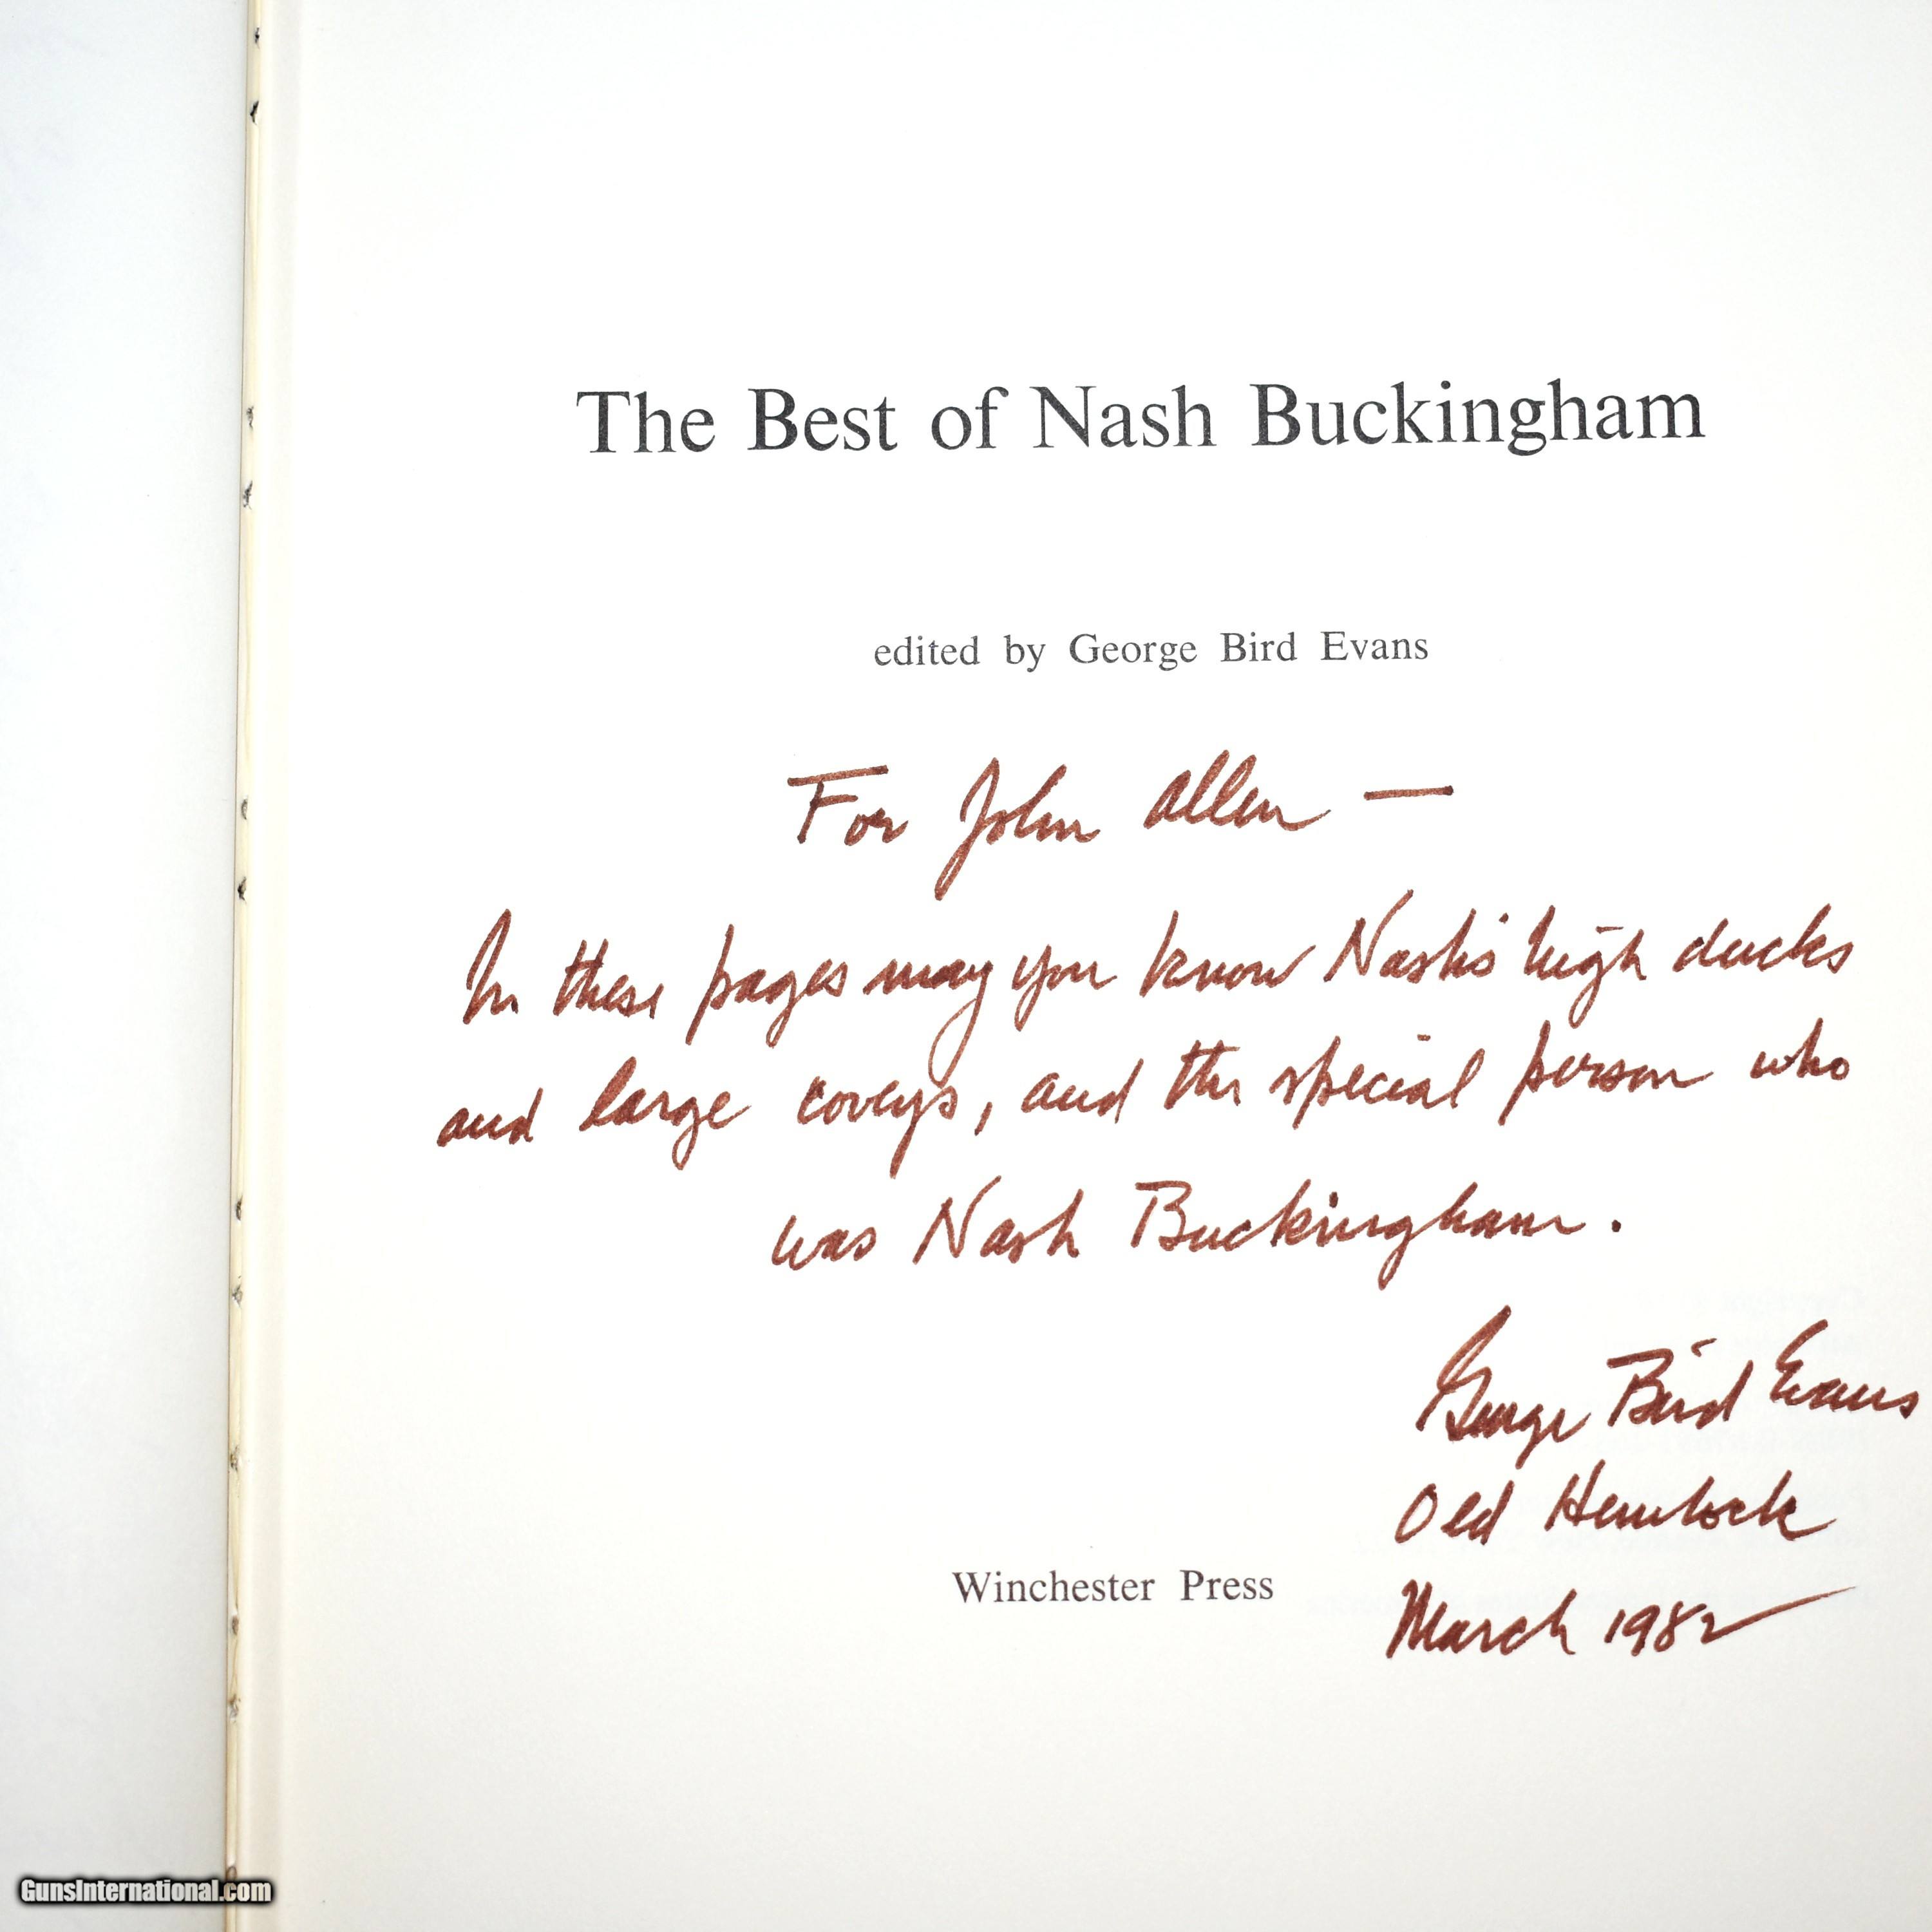 The Best of Nash Buckingham
edited by George Bird Evans
For John Allen —
In these pages may you know Nash's high ducks
and large coveys, and the special person who
was Nash Buckingham.
George Bird Evans
Old Hemlock
Winchester Press
March 1982
GunsInternational.com